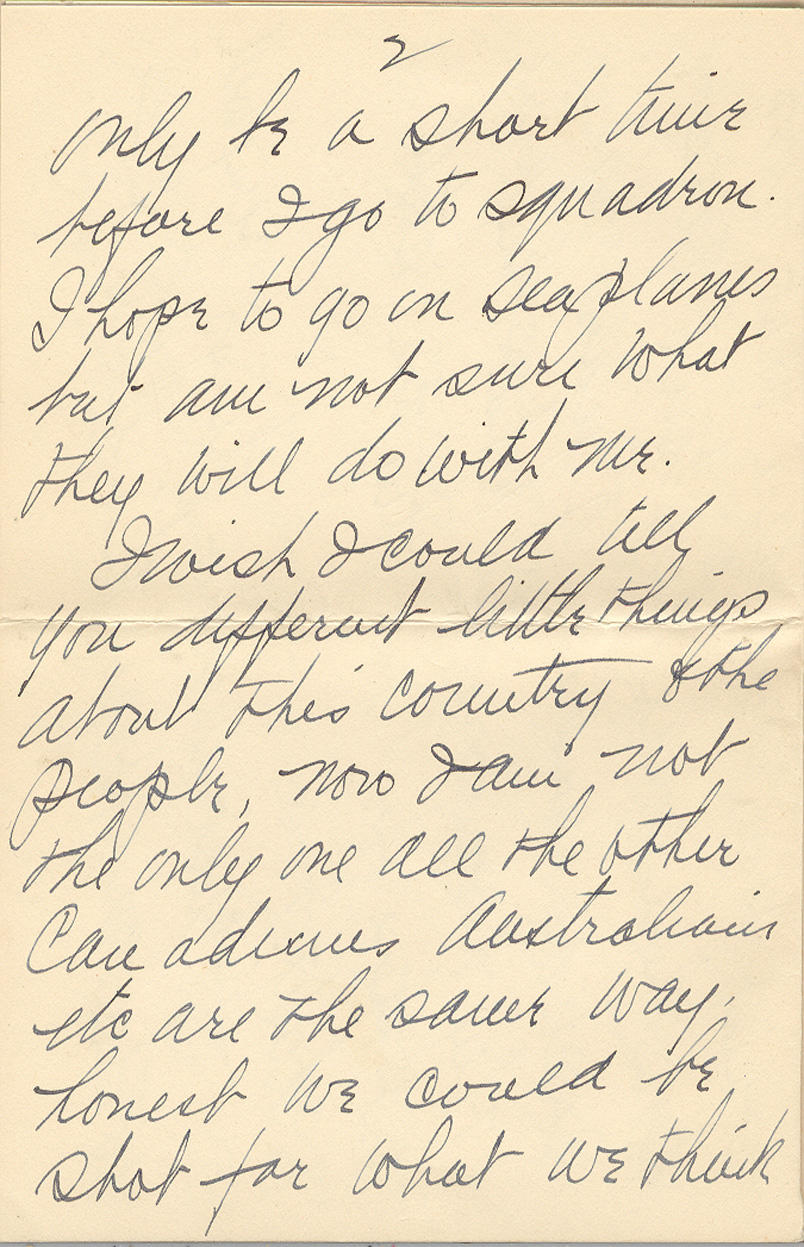 2
only be a short time
before I go to squadron.
I hope to go on seaplanes
but am not sure what
they will do with me.
I wish I could tell
you different little things
about this country & the
people, now I am not
the only one all the other
Canadians Australians
etc are the same way.
honest we could be
shot for what we think